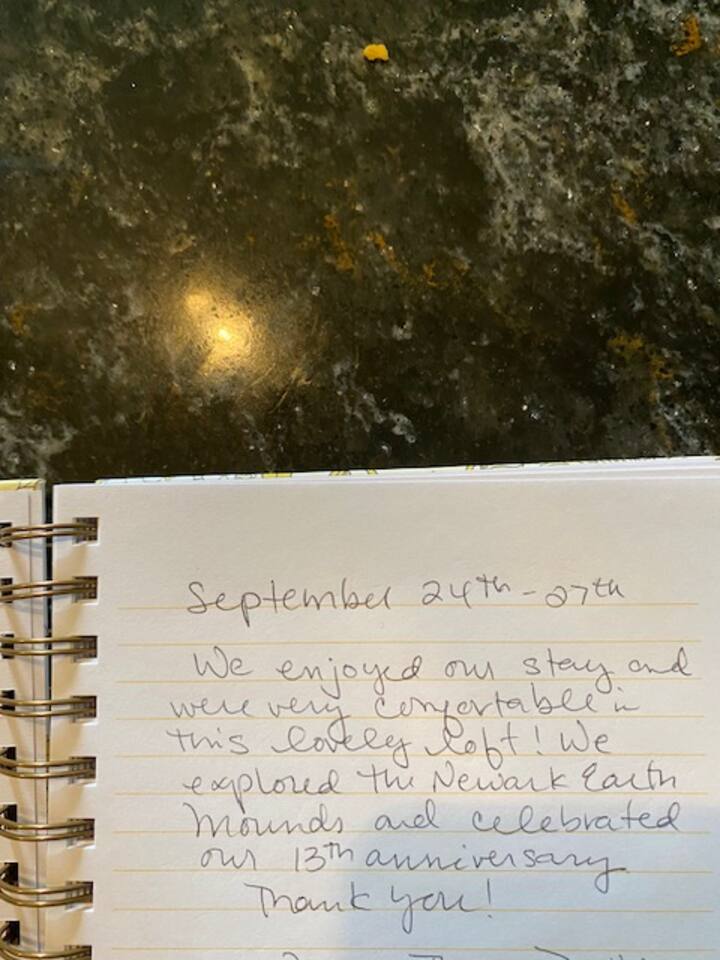 September 24th - 27th
We enjoyed our stay and
were very comfortable in
this lovely loft! We
explored the Newark Earth
Mounds and celebrated
our 13th anniversary
Thank you!